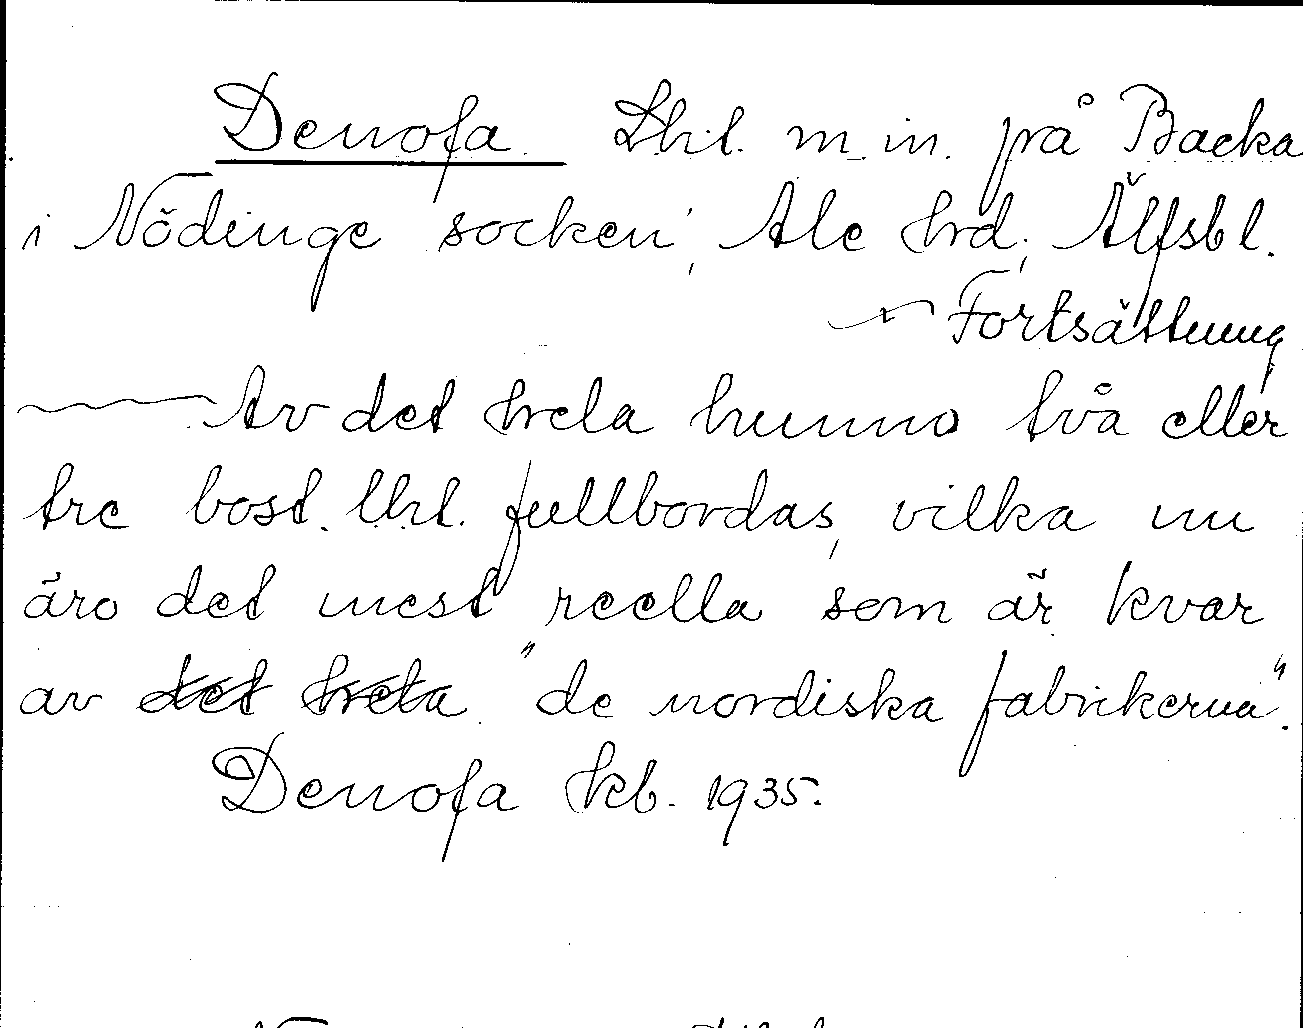 Denofa Lht. m. m. på Backa
i Nödinge socken, Ale hrd, Älfsb l.
Fortsättning
Av det hela hunno två eller
tre bost. lht. fullbordas, vilka nu
äro det mest reella som är kvar
av det hela "de nordiska fabrikerna".
Denofa kb. 1935.